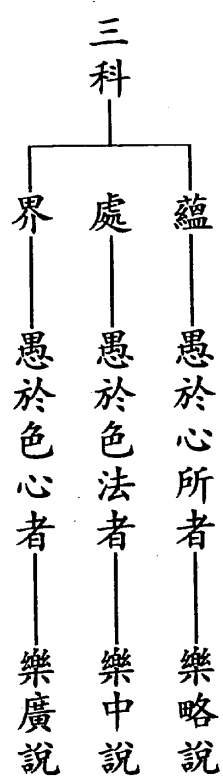 三科
蘊 愚於心所者 樂略說
處 愚於色法者 樂中說
界 愚於色心者 樂廣說